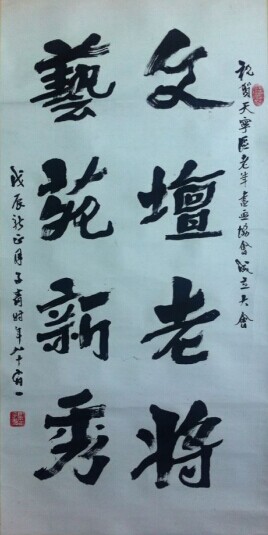 祝賀天寧區老年書画協會成立大會
文壇老將
藝苑新秀
戊辰新正月子青時年八十有一